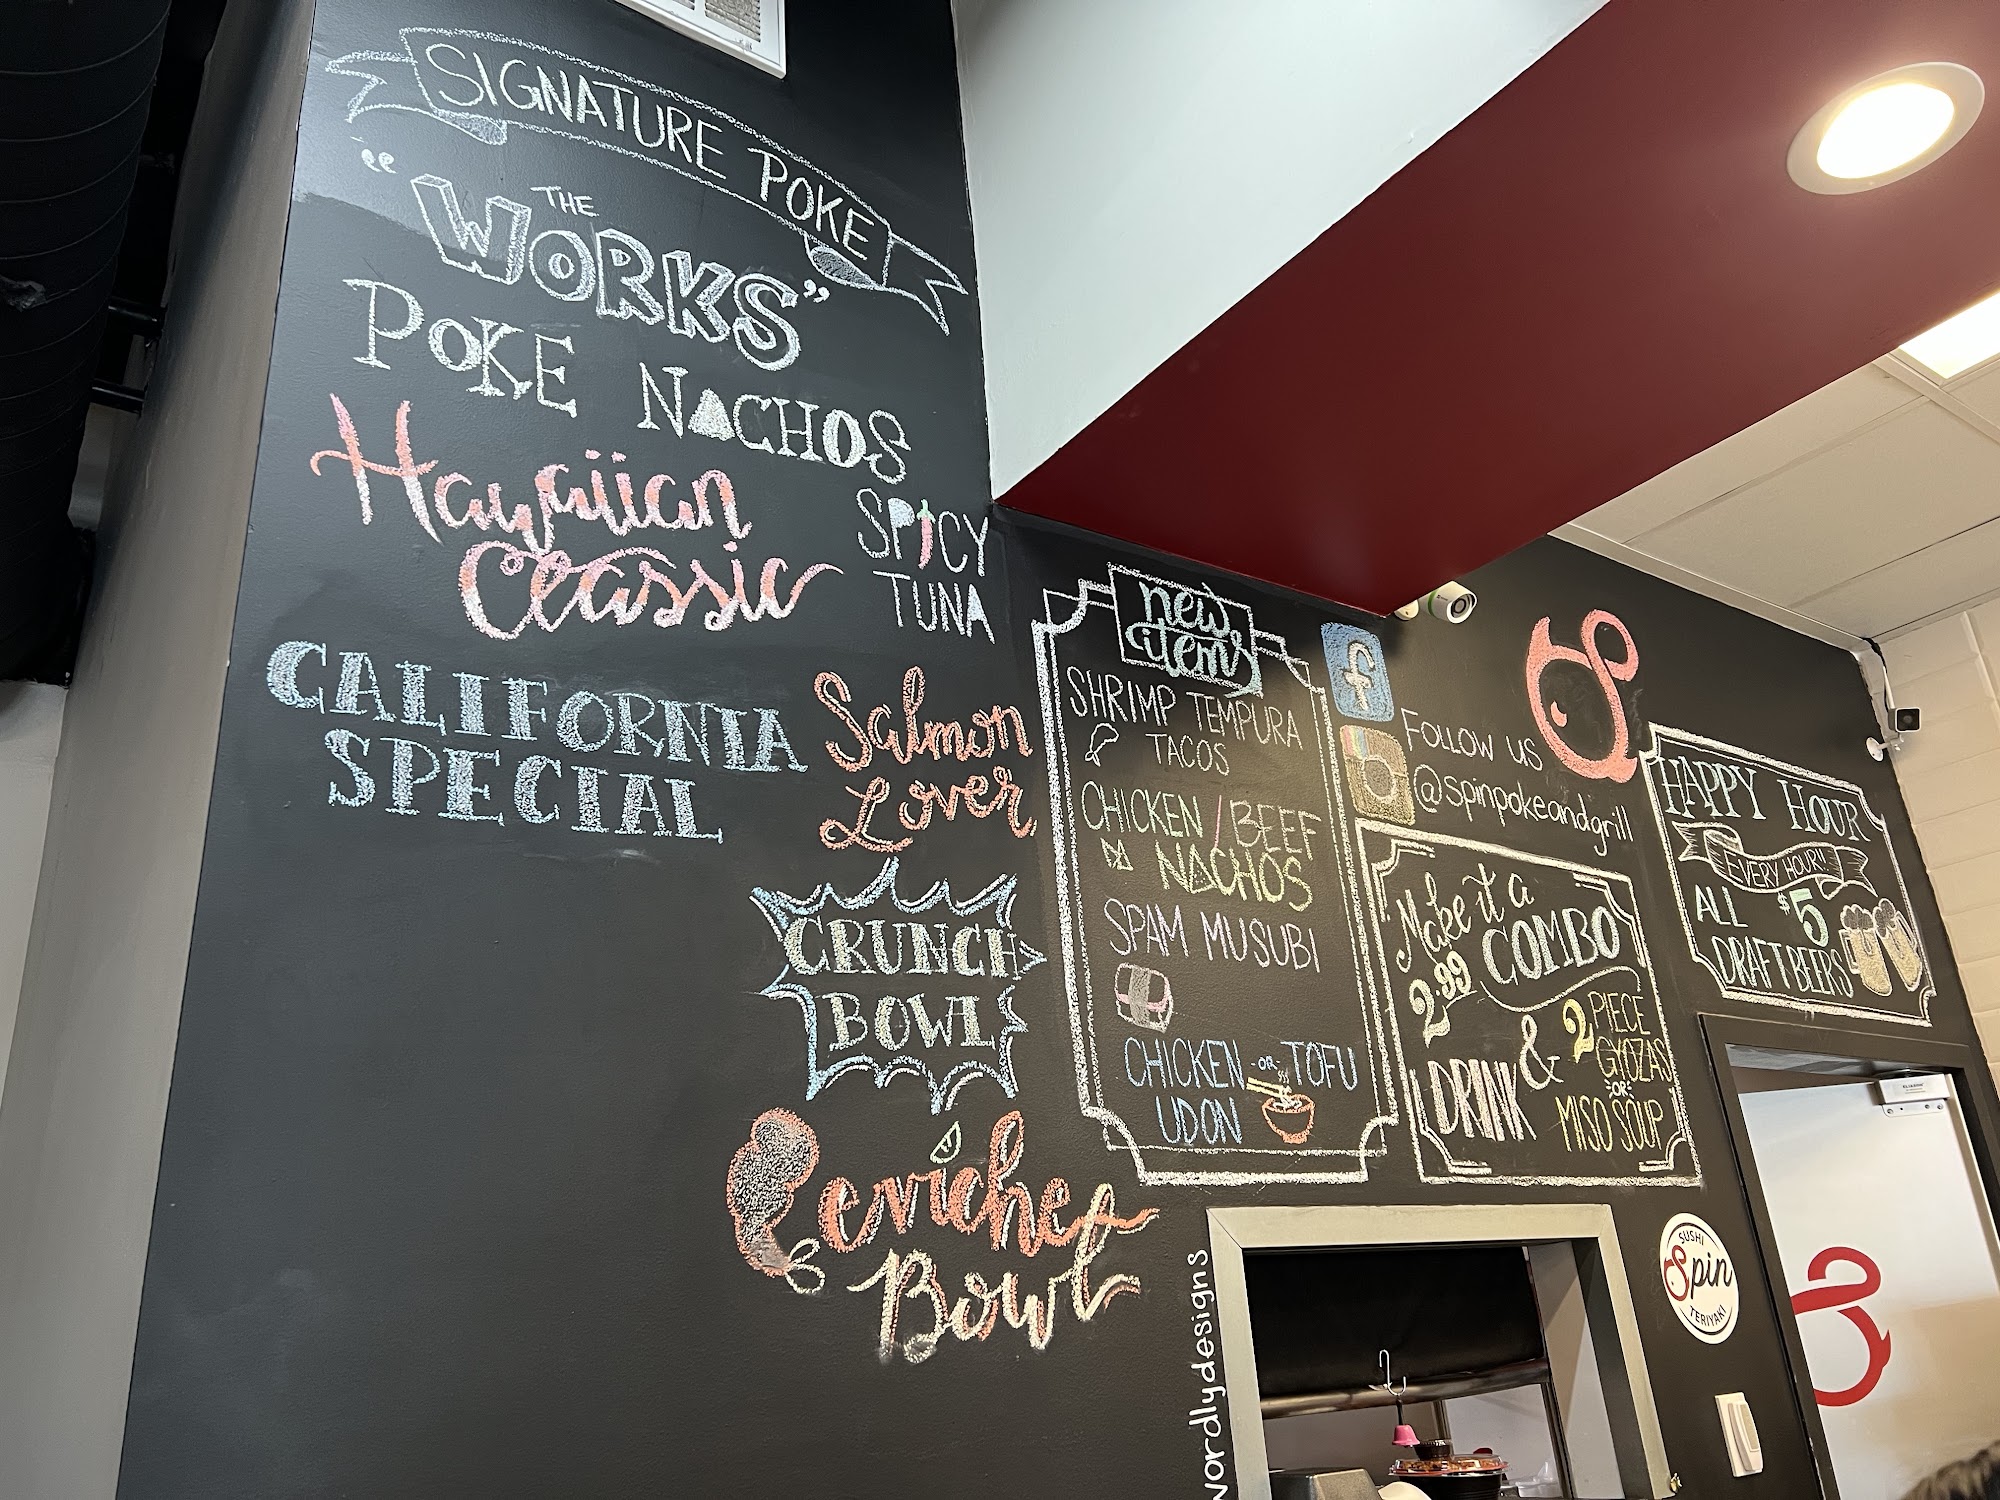 SIGNATURE POKE
"THE
WORKS"
POKE NACHOS
Hawaiian
Classic
SPICY
TUNA
CALIFORNIA
SPECIAL
Salmon
Lover
CRUNCH
BOWL
Ceviche
Bowl
new
items
SHRIMP TEMPURA
TACOS
CHICKEN / BEEF
NACHOS
SPAM MUSUBI
CHICKEN -OR- TOFU
UDON
f
FOLLOW US
@spinpokeandgrill
Make it a
COMBO
2.99
DRINK & 2 PIECE
GYOZAS
OR
MISO SOUP
HAPPY HOUR
EVERY HOUR!!
ALL $5
DRAFT BEERS
SUSHI
Spin
TERIYAKI
wordlydesigns